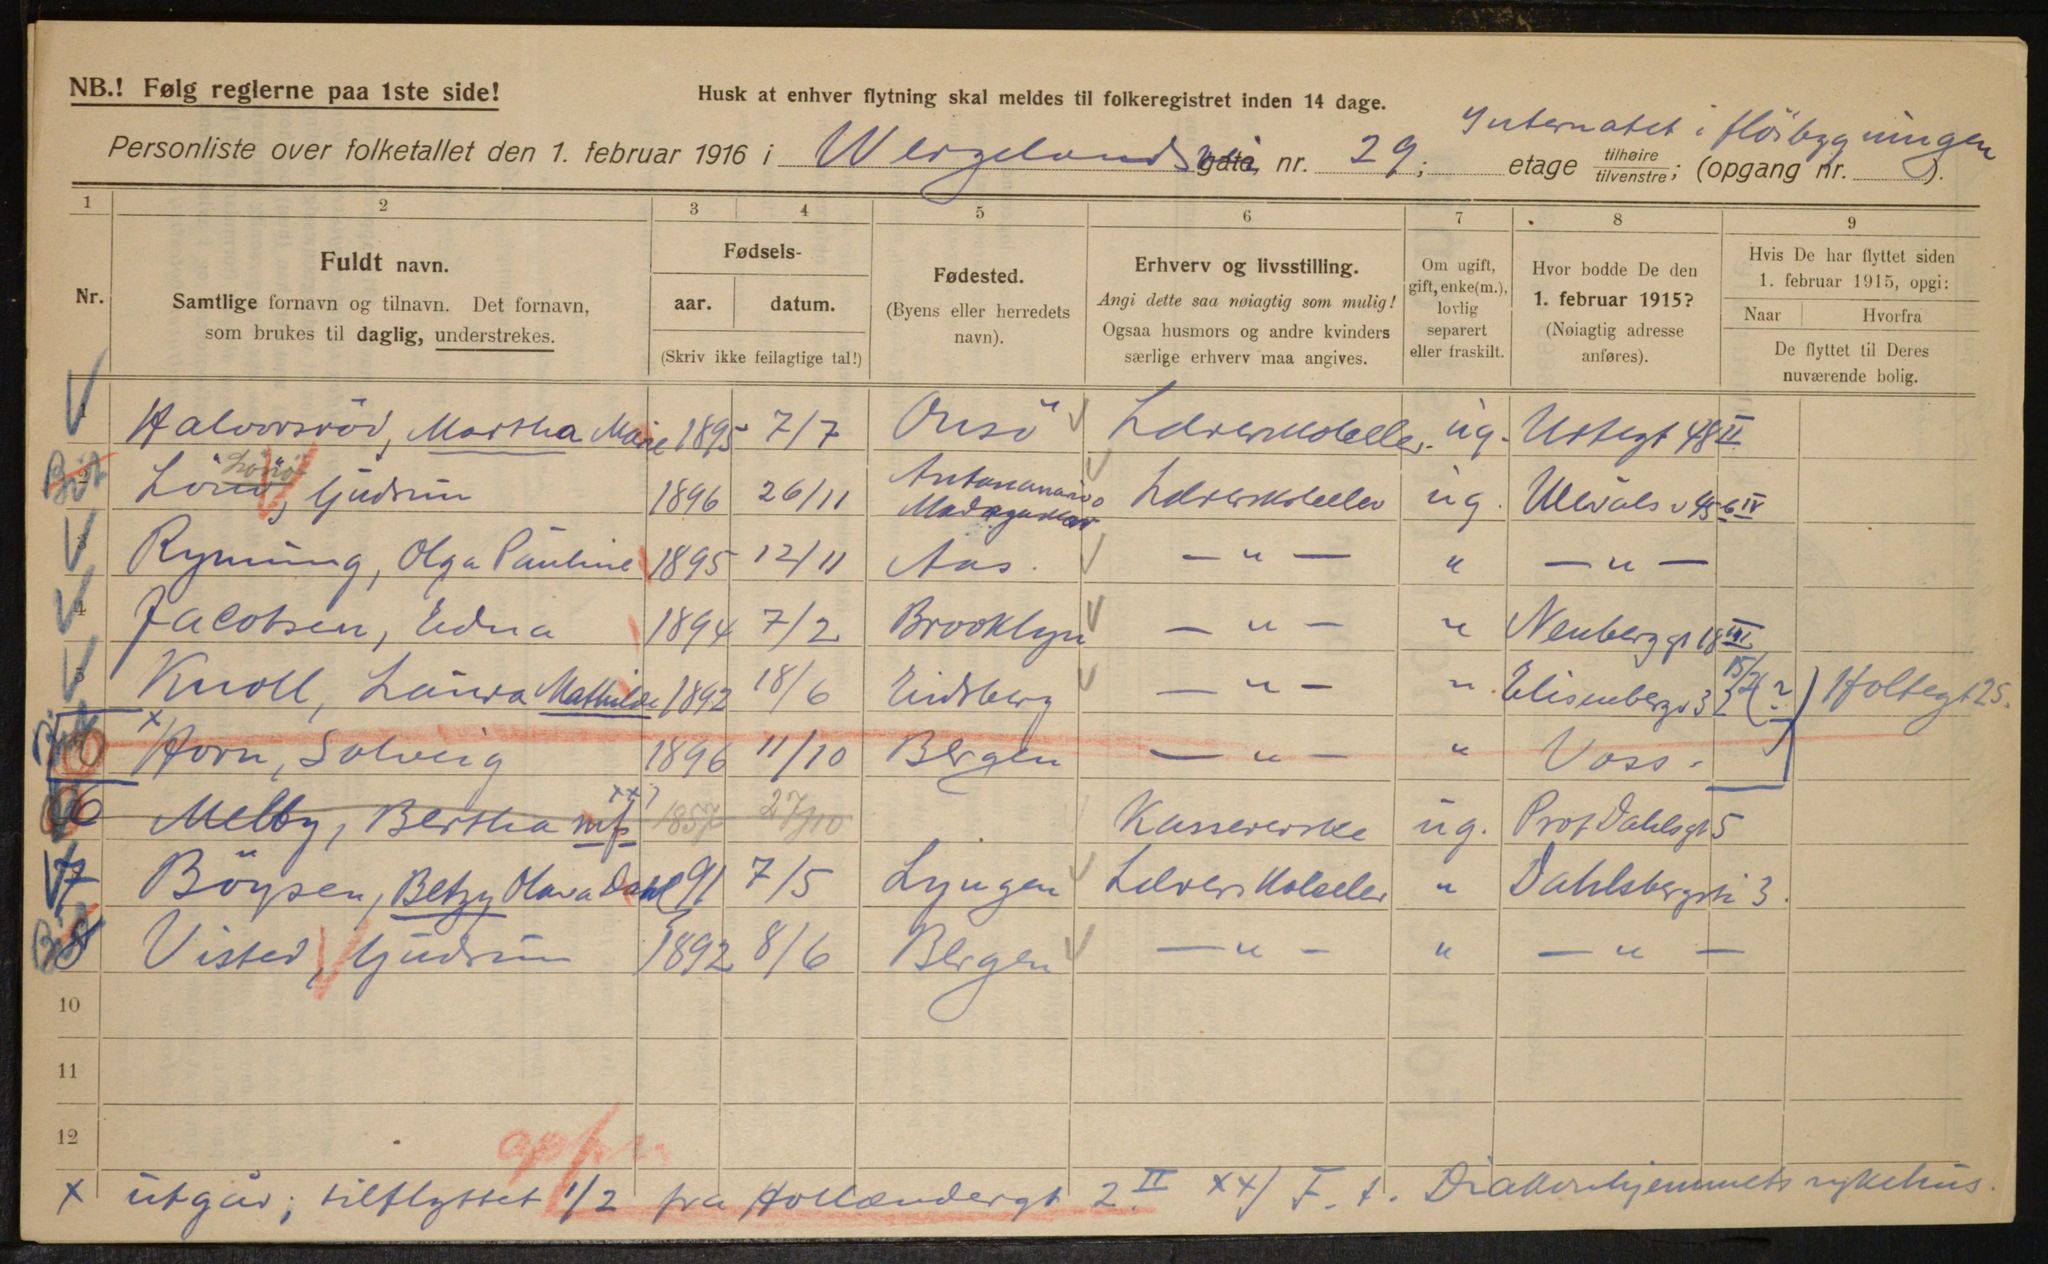 NB.! Følg reglerne paa 1ste side!
Husk at enhver flytning skal meldes til folkeregistret inden 14 dage.
Internatet i fløibygningen
Personliste over folketallet den 1. februar 1916 i Wergelandsvei gate nr. 29; etage tilhøire tilvenstre; (opgang nr. ).
1 2 3 4 5 6 7 8 9
Nr.
Fuldt navn.
Samtlige fornavn og tilnavn. Det fornavn,
som brukes til daglig, understrekes.
Fødsels-
aar. datum.
(Skriv ikke feilagtige tal!)
Fødested.
(Byens eller herredets
navn).
Erhverv og livsstilling.
Angi dette saa nøiagtig som mulig!
Ogsaa husmors og andre kvinders
særlige erhverv maa angives.
Om ugift,
gift, enke(m.),
lovlig
separert
eller fraskilt.
Hvor bodde De den
1. februar 1915?
(Nøiagtig adresse
anføres).
Hvis De har flyttet siden
1. februar 1915, opgi:
Naar Hvorfra
De flyttet til Deres
nuværende bolig.
1 Halvorsröd, Martha Marie 1895 7/7 Onsö Lærerskoleelev ug. Ustegt 48 II
2 Gudrun 1896 26/11 Antananarivo Madagaskar Lærerskoleelev ug. Ulevålsv 45 IV
3 Ryning, Olga Pauline 1895 12/11 Aas. — " — " — " —
4 Jacobsen, Edna 1894 7/2 Brooklyn — " — " Neuberggt 18 III
5 Knoll, Laura Mathilde 1892 18/6 Eidsberg — " — " Elisenbergv 3 15/2 Holtegt 25.
x/ Horn, Solveig 1896 11/10 Bergen — " — " Voss.
6 Melby, Bertha xx) 1857 27/10 Kassererske ug. Prof Dahlsgt 5
7 Böysen, Betzy Olava Dahl 91 7/5 Lyngen Lærerskoleelev " Dahlsbergsti 3.
8 Visted, Gudrun 1892 8/6 Bergen — " — " — " —
10
11
12
x utgår; tilflyttet 1/2 fra Hollændergt 2. II xx) F. t. Diakonhjemmets sykehus.